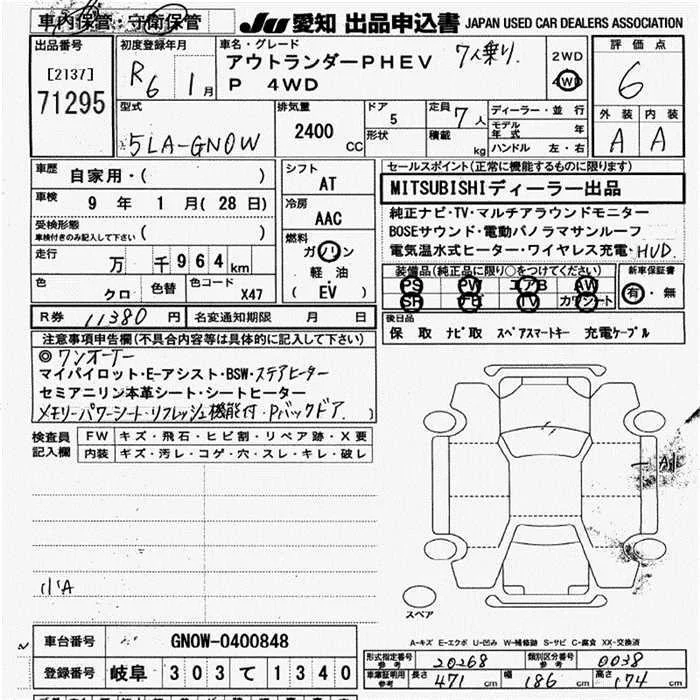 車内保管・守衛保管
JU 愛知 出品申込書 JAPAN USED CAR DEALERS ASSOCIATION
出品番号
[2137]
71295
初度登録年月
R6 1月
車名・グレード
アウトランダーPHEV 7人乗り.
P 4WD
2WD
4WD
評価点
6
外装 内装
A A
型式
5LA-GN0W
排気量
2400 CC
ドア
5
形状
定員
7人
積載
kg
ディーラー・並行
モデル年式 年
ハンドル 左・右
車歴
自家用・( )
車検
9年 1月( 28日)
受検形態
車検付きのみ記入して下さい ( )
走行
万 千964km
色
クロ
色替
色コード
X47
シフト
AT
冷房
AAC
燃料
ガソリン
軽油
( EV )
セールスポイント(正常に機能するものに限ります)
MITSUBISHIディーラー出品
純正ナビ・TV・マルチアラウンドモニター
BOSEサウンド・電動パノラマサンルーフ
電気温水式ヒーター・ワイヤレス充電・HUD.
装備品(純正品に限り○をつけてください)
PS PW エアB AW
SR ナビ TV カワシート
新車保証書
有・無
R券 11380円
名変通知期限 月 日
後日品
保 取 ナビ取 スペアスマートキー 充電ケーブル
注意事項申告欄(不具合内容等は具体的に記入して下さい)
◎ワンオーナー
マイパイロット・E-アシスト・BSW・ステアヒーター
セミアニリン本革シート・シートヒーター
メモリーパワーシート・リフレッシュ機能付・Pバックドア.
検査員記入欄
FW キズ・飛石・ヒビ割・リペア跡・X要
内装 キズ・汚レ・コゲ・穴・スレ・キレ・破レ
小A
A1
スペア
A-キズ E-エクボ U-凹み W-補修跡 S-サビ C-腐食 XX-交換済
車台番号 GN0W-0400848
登録番号 岐阜 303 て 1340
形式指定番号 参考 20268
類別区分番号 参考 0038
車庫証明用 参考 長さ 471cm 幅 186cm 高さ 174cm